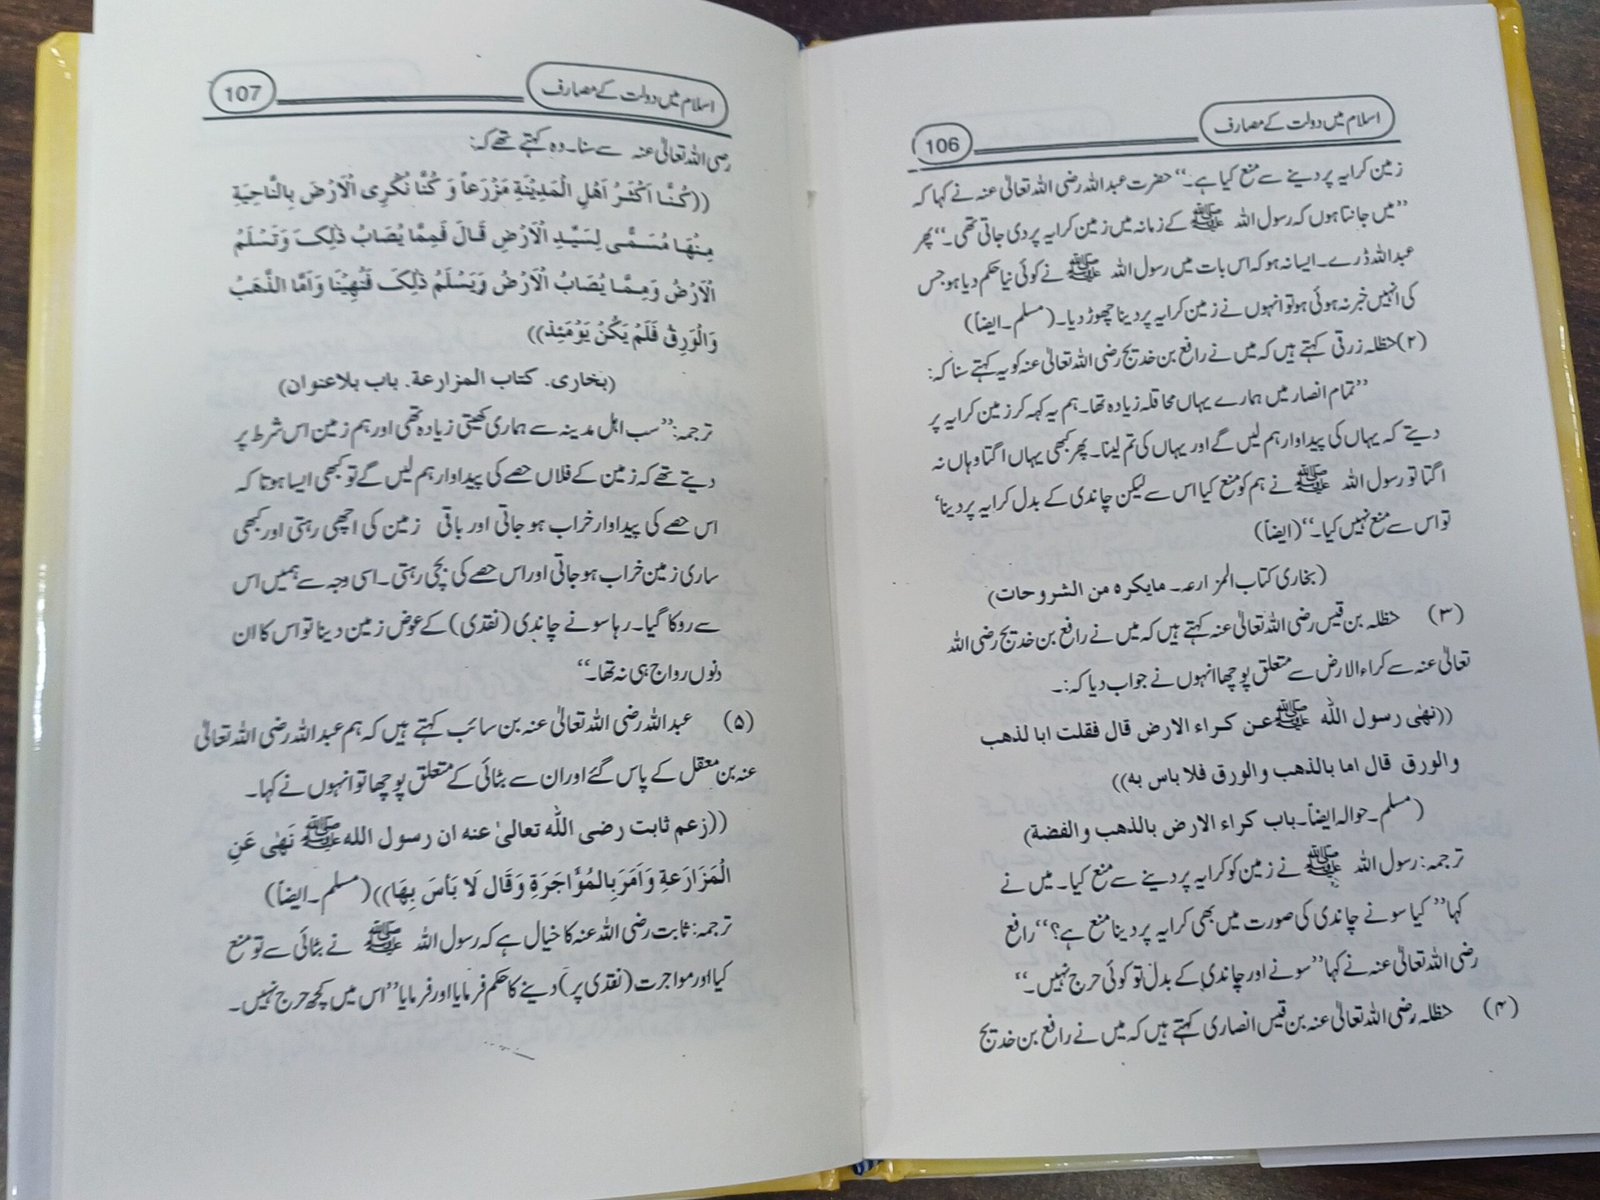 اسلام میں دولت کے مصارف
106
زمین کرایہ پر دینے سے منع کیا ہے۔‘‘ حضرت عبداللہ رضی اللہ تعالیٰ عنہ نے کہا کہ
’’میں جانتا ہوں کہ رسول اللہ ﷺ کے زمانہ میں زمین کرایہ پر دی جاتی تھی۔‘‘ پھر
عبداللہ ڈرے۔ ایسا نہ ہو کہ اس بات میں رسول اللہ ﷺ نے کوئی نیا حکم دیا ہو جس
کی انہیں خبر نہ ہوئی ہو تو انہوں نے زمین کرایہ پر دینا چھوڑ دیا۔ (مسلم۔ ایضاً)
(۲) حنظلہ زرقی کہتے ہیں کہ میں نے رافع بن خدیج رضی اللہ تعالیٰ عنہ کو یہ کہتے سنا کہ:
’’تمام انصار میں ہمارے یہاں محاقلہ زیادہ تھا۔ ہم یہ کہہ کر زمین کرایہ پر
دیتے کہ یہاں کی پیداوار ہم لیں گے اور یہاں کی تم لینا۔ پھر کبھی یہاں اگتا وہاں نہ
اگتا تو رسول اللہ ﷺ نے ہم کو منع کیا اس سے لیکن چاندی کے بدل کرایہ پر دینا‘
تو اس سے منع نہیں کیا۔‘‘ (ایضاً)
(بخاری کتاب المزارعہ۔ مایکره من الشروحات)
(۳) حنظلہ بن قیس رضی اللہ تعالیٰ عنہ کہتے ہیں کہ میں نے رافع بن خدیج رضی اللہ
تعالیٰ عنہ سے کراء الارض سے متعلق پوچھا انہوں نے جواب دیا کہ:۔
((نهٰی رسول اللّٰه ﷺ عن کراء الارض قال فقلت ابا لذهب
والورق قال اما بالذهب والورق فلا باس به))
(مسلم۔ حوالہ ایضاً۔ باب کراء الارض بالذهب والفضة)
ترجمہ: رسول اللہ ﷺ نے زمین کو کرایہ پر دینے سے منع کیا۔ میں نے
کہا’’ کیا سونے چاندی کی صورت میں بھی کرایہ پر دینا منع ہے؟‘‘ رافع
رضی اللہ تعالیٰ عنہ نے کہا’’سونے اور چاندی کے بدل تو کوئی حرج نہیں۔‘‘
(۴) حنظلہ رضی اللہ تعالیٰ عنہ بن قیس انصاری کہتے ہیں کہ میں نے رافع بن خدیج
اسلام میں دولت کے مصارف
107
رضی اللہ تعالیٰ عنہ سے سنا۔ وہ کہتے تھے کہ:
((کُنَّا اَکْثَرُ اَهْلِ الْمَدِیْنَةِ مَزْرَعاً وَ کُنَّا نُکْرِی الْاَرْضَ بِالنَّاحِیَةِ
مِنْهَا مُسَمًّی لِسَیِّدِ الْاَرْضِ قَالَ فَمِمَّا یُصَابُ ذٰلِکَ وَتَسْلَمُ
الْاَرْضُ وَمِمَّا یُصَابُ الْاَرْضُ وَیَسْلَمُ ذٰلِکَ فَنُهِیْنَا وَاَمَّا الذَّهَبُ
وَالْوَرِقُ فَلَمْ یَکُنْ یَوْمَئِذ))
(بخاری۔ کتاب المزارعة۔ باب بلاعنوان)
ترجمہ:’’سب اہل مدینہ سے ہماری کھیتی زیادہ تھی اور ہم زمین اس شرط پر
دیتے تھے کہ زمین کے فلاں حصے کی پیداوار ہم لیں گے تو کبھی ایسا ہوتا کہ
اس حصے کی پیداوار خراب ہو جاتی اور باقی زمین کی اچھی رہتی اور کبھی
ساری زمین خراب ہو جاتی اور اس حصے کی بچی رہتی۔ اسی وجہ سے ہمیں اس
سے روکا گیا۔ رہا سونے چاندی (نقدی) کے عوض زمین دینا تو اس کا ان
دنوں رواج ہی نہ تھا۔‘‘
(۵) عبداللہ رضی اللہ تعالیٰ عنہ بن سائب کہتے ہیں کہ ہم عبداللہ رضی اللہ تعالیٰ
عنہ بن معقل کے پاس گئے اور ان سے بٹائی کے متعلق پوچھا تو انہوں نے کہا۔
((زعم ثابت رضی اللّٰه تعالیٰ عنه ان رسول الله ﷺ نَهٰی عَنِ
الْمَزَارَعةِ وَاَمَرَ بِالْمُؤَاجَرَةِ وَقَال لَا بَأسَ بِهَا)) (مسلم۔ ایضاً)
ترجمہ: ثابت رضی اللہ عنہ کا خیال ہے کہ رسول اللہ ﷺ نے بٹائی سے تو منع
کیا اور مواجرت (نقدی پر) دینے کا حکم فرمایا اور فرمایا’’اس میں کچھ حرج نہیں۔